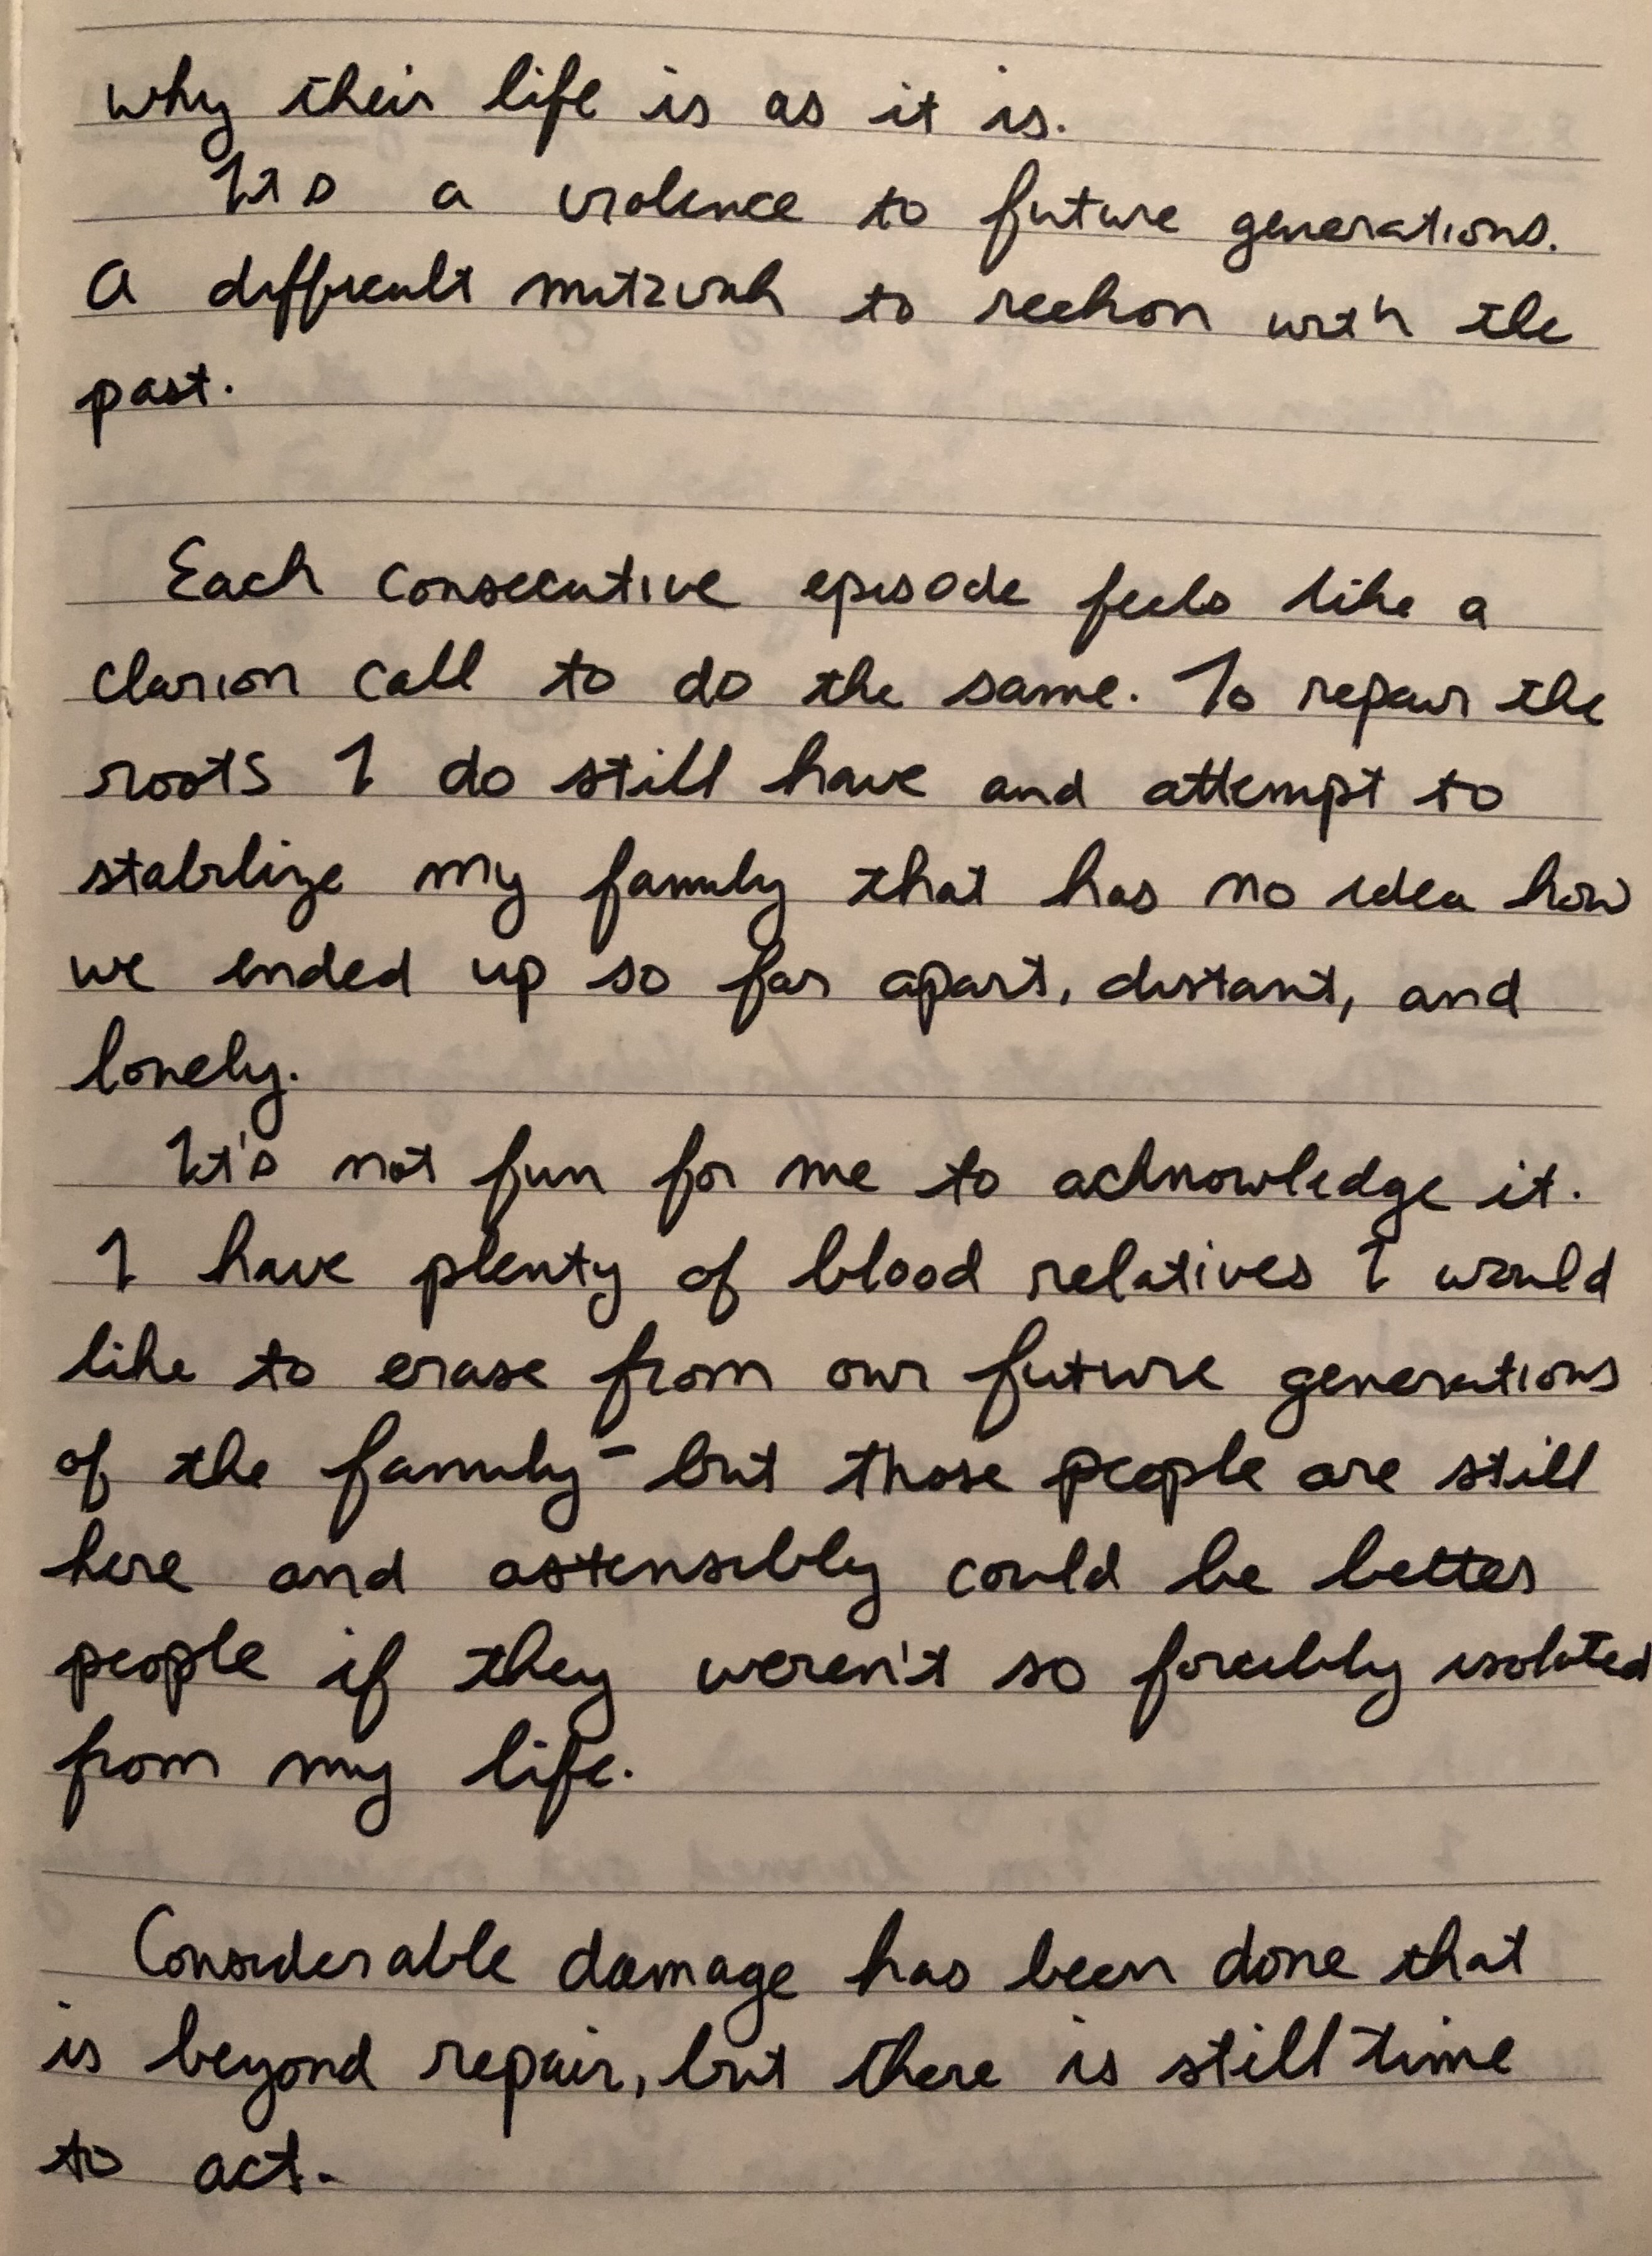 why their life is as it is.
Its a violence to future generations.
A difficult mitzvah to reckon with the
past.
Each consecutive episode feels like a
clarion call to do the same. To repair the
roots I do still have and attempt to
stabilize my family that has no idea how
we ended up so far apart, distant, and
lonely.
It's not fun for me to acknowledge it.
I have plenty of blood relatives I would
like to erase from our future generations
of the family - but those people are still
here and ostensibly could be better
people if they weren't so forcibly isolated
from my life.
Considerable damage has been done that
is beyond repair, but there is still time
to act.